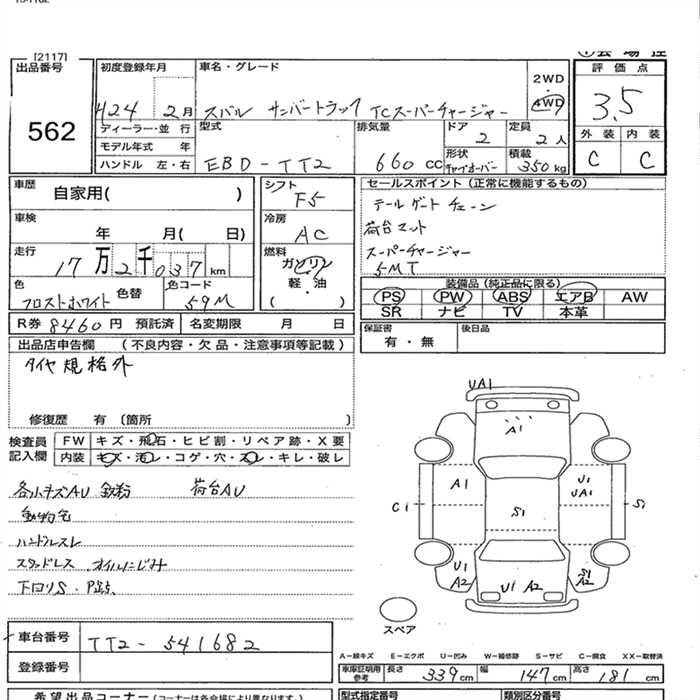 [2117]
出品番号
562
初度登録年月
H24 2月
ディーラー・並 行
モデル年式 年
ハンドル 左・右
車名・グレード
スバル サンバートラック TCスーパーチャージャー
2WD
4WD
型式
EBD-TT2
排気量
660 cc
ドア
2
定員
2人
形状
積載
350kg
評価点
3.5
外装 内装
C C
車歴
自家用( )
車検
年 月( 日)
走行
17万2千037km
色
フロストホワイト
色替
色コード
59M
シフト
F5
冷房
AC
燃料
ガソリン
軽・油
( ・ )
セールスポイント(正常に機能するもの)
テールゲートチェーン
荷台マット
スーパーチャージャー
5MT
装備品(純正品に限る)
PS PW ABS エアB AW
SR ナビ TV 本革
R券 8460円 預託済
名変期限 月 日
保証書
有・無
後日品
出品店申告欄 (不良内容・欠品・注意事項等記載)
タイヤ規格外
修復歴 有 〔箇所 〕
検査員
記入欄
FW キズ・飛石・ヒビ割・リペア跡・X要
内装 キズ・汚レ・コゲ・穴・スレ・キレ・破レ
各小キズAU 鉄粉 荷台AU
ハンドルスレ
スタッドレス オイルにじみ
下回りS
UA1
A1
A1
U1
UA1
C1
S1
S1
U1
A2
U1 A2
S1
A2
スペア
車台番号
TT2-541682
登録番号
A-線キズ E-エクボ U-凹み W-補修跡 S-サビ C-腐食 XX-取替済
車庫証明用
参考
長さ 339cm
幅 147cm
高さ 181cm
希望出品コーナー(コーナーは各会場により異なります。)
型式指定番号
類別区分番号